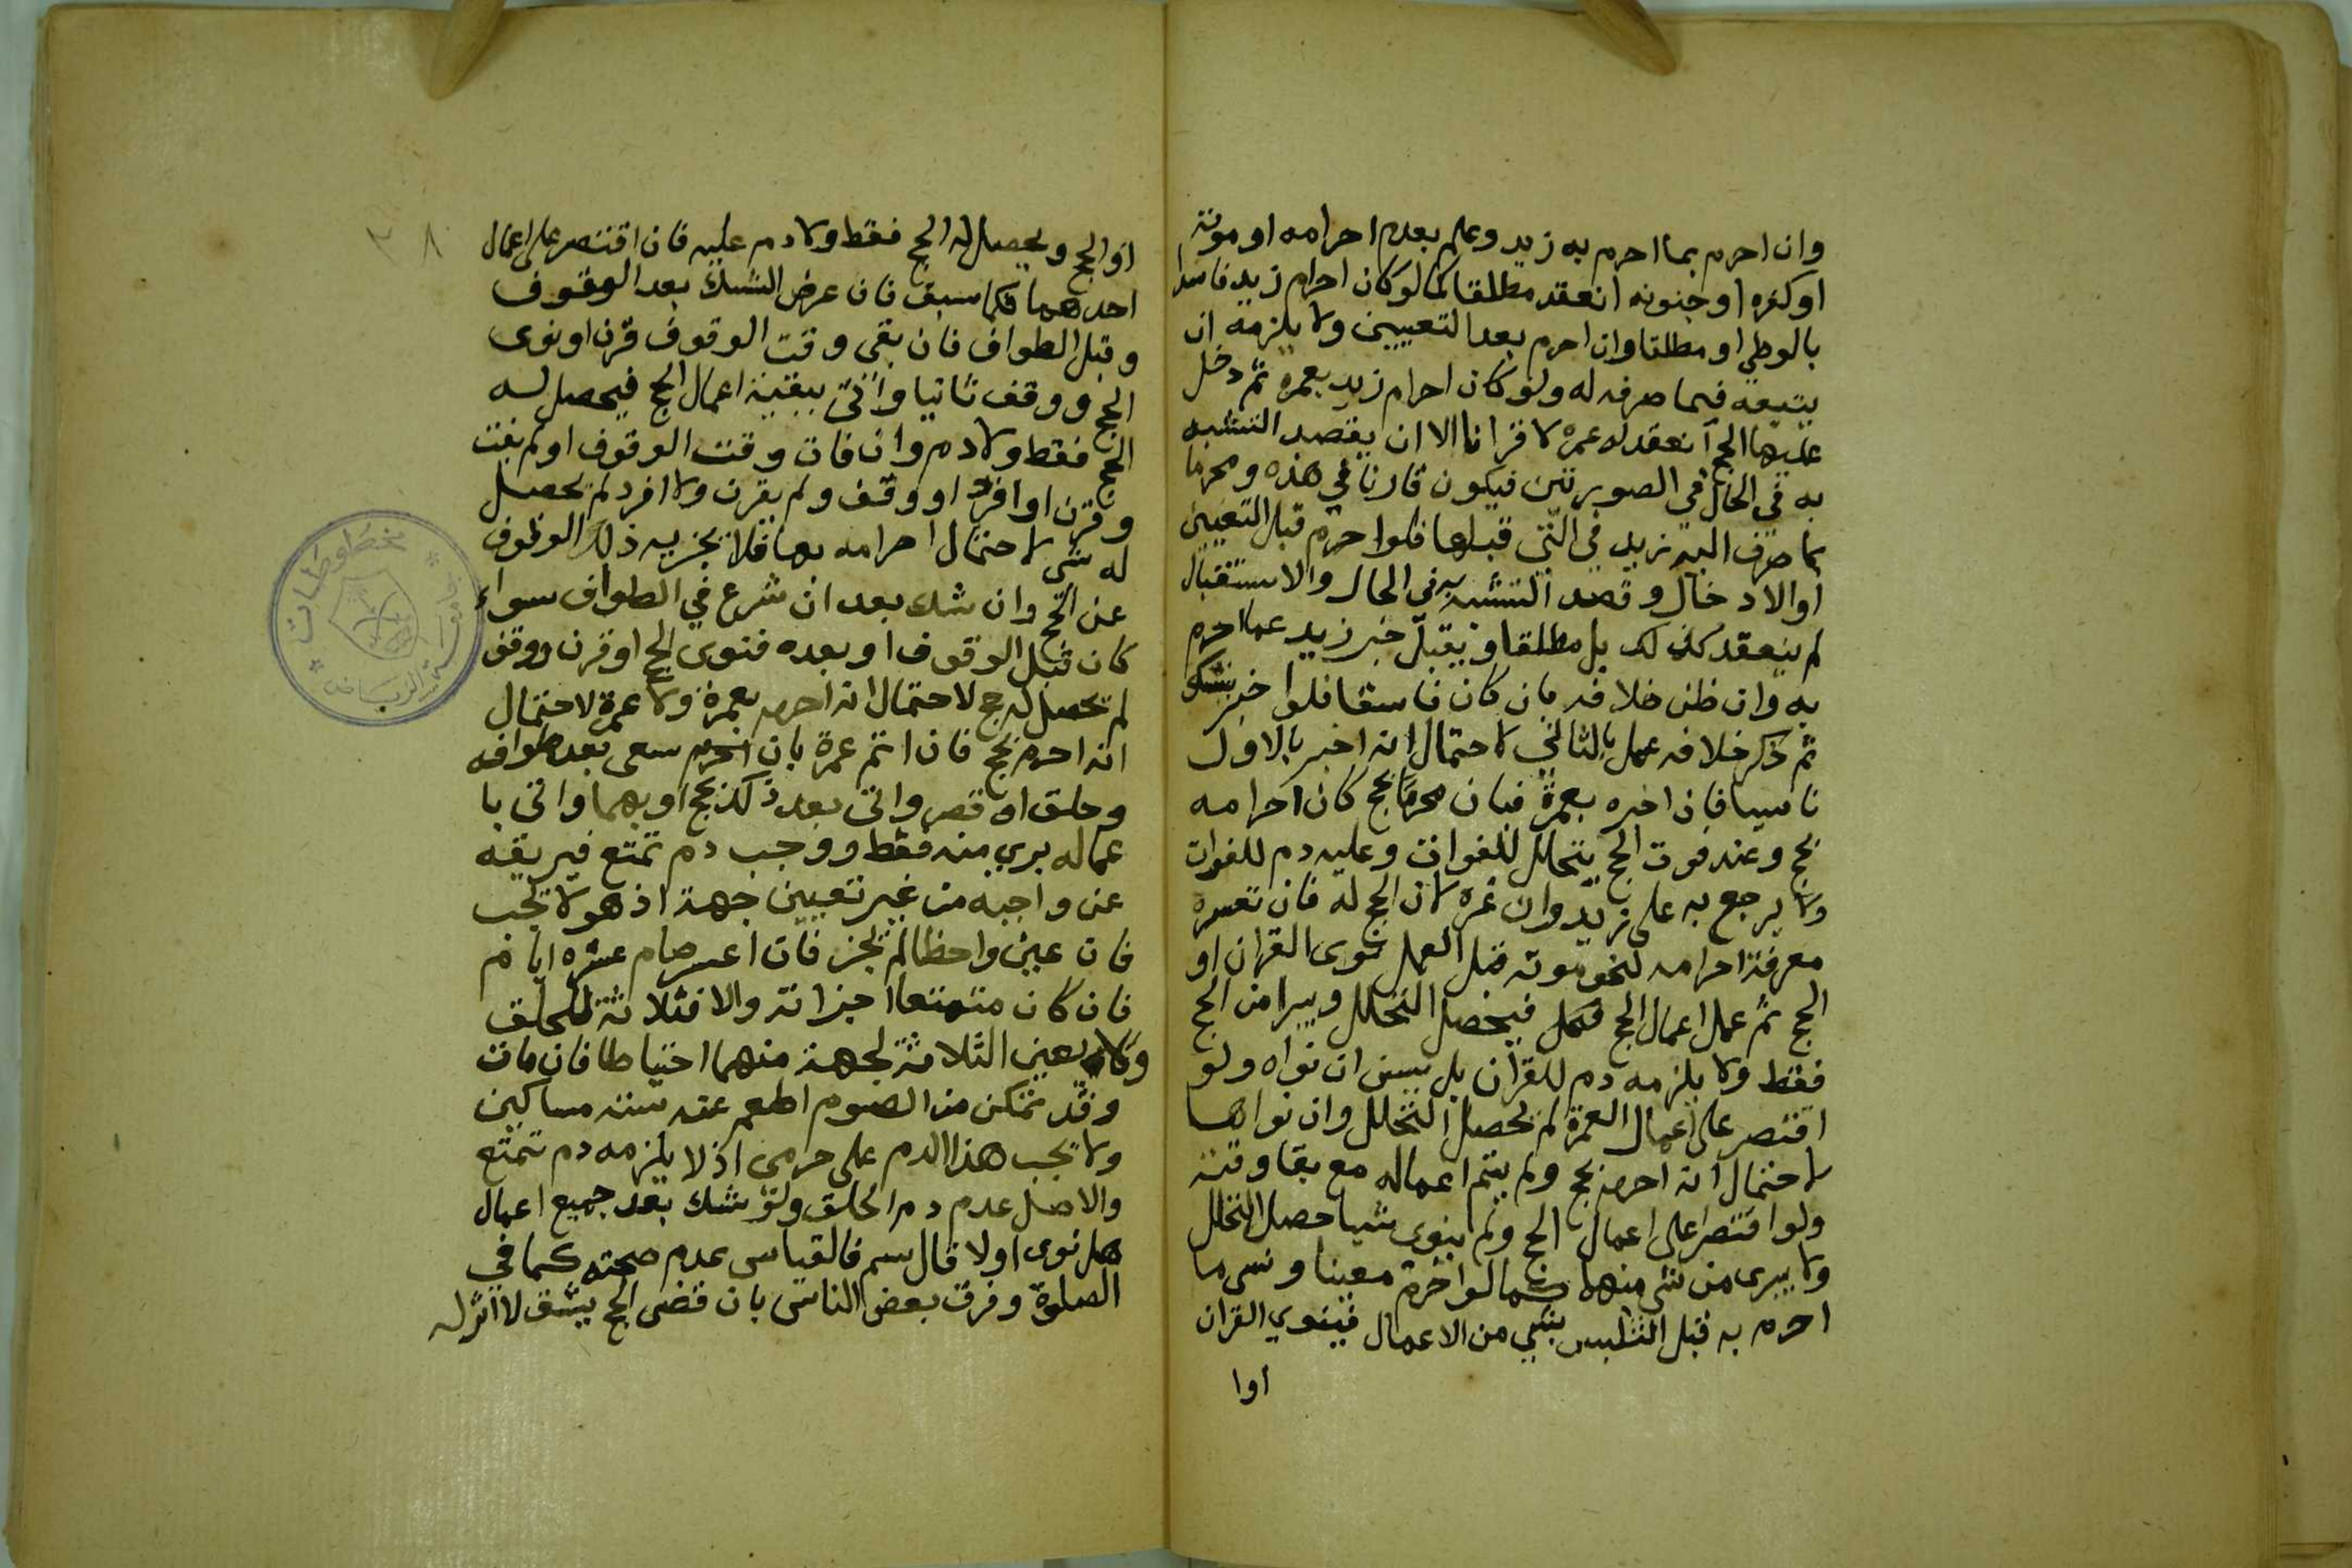 وان احرم بما احرم به زيد وعلم بعدم احرامه او موته
او كفره او جنونه انعقد مطلقا كما لو كان احرام زيد فاسدا
بالوطي او مطلقا وان احرم بعد التعيين ولا يلزمه ان
يتبعه فيما صرفه له ولو كان احرام زيد بعمرة ثم دخل
عليها الحج انعقد له عمرة لا قرانا الا ان يقصد التشبه
به في الحال في الصورتين فيكون قارنا في هذه ومحرما
بما صرف اليه زيد في التي قبلها فلو احرم قبل التعيين
او الادخال وقصد التشبه به في الحال والاستقبال
لم ينعقد كذلك بل مطلقا ويقبل خبر زيد عما احرم
به وان ظن خلافه بان كان فاسقا فلو اخبر بنسك
ثم ذكر خلافه عمل بالثاني لاحتمال انه اخبر بالاول
ناسيا فان اخبره بعمرة فبان محرما بحج كان احرامه
بحج وعند فوت الحج يتحلل للفوات وعليه دم للفوات
ولا يرجع به على زيد وان غره لان الحج له فان تعسره
معرفة احرامه لنحو موته قبل العمل نوى القران او
الحج ثم عمل اعمال الحج فكل فيحصل التحلل ويبرا من الحج
فقط ولا يلزمه دم للقران بل يسن ان نواه ولو
اقتصر على اعمال العمرة لم يحصل التحلل وان نواها
لاحتمال انه احرم بحج ولم يتم اعماله مع بقا وقته
ولو اقتصر على اعمال الحج ولم ينوى شيا حصل التحلل
ولا يبرى من شي منهما كما لو احرم معينا ونسى ما
احرم به قبل التلبس بشي من الاعمال فينوي القران
اوا
او الحج ويحصل له الحج فقط ولا دم عليه فان اقتصر على اعمال
احدهما فكما سبق فان عرض الشك بعد الوقوف
وقبل الطواف فان بقى وقت الوقوف قرن او نوى
الحج ووقف ثانيا واتى ببقية اعمال الحج فيحصل له
الحج فقط ولا دم وان فات وقت الوقوف او لم يفت
وقرن او افرد او وقف ولم يقرن ولا افرد لم يحصل
له شي لاحتمال احرامه بها فلا يجزيه ذلك الوقوف
عن الحج وان شك بعد ان شرع في الطواف سواء
كان قبل الوقوف او بعده فنوى الحج او قرن ووقف
لم يحصل له حج لاحتمال انه احرم بعمرة ولا عمرة لاحتمال
انه احرم بحج فان اتم عمرة بان احرم سعى بعد طوافه
وحلق او قصر واتى بعد ذلك بحج او بهما واتى با
عماله بري منه فقط ووجب دم تمتع فيريقه
عن واجبه من غير تعيين جهة اذ هو لا يجب
فان عين واحظا لم يجز فان اعسر صام عشرة ايام
فان كان متمتعا اجزاته والا فثلاثة للحلق
ولا يعين الثلاثة لجهة منهما احتياطا فان مات
وقد تمكن من الصوم اطعم عنه ستة مساكين
ولا يجب هذا الدم على حرمى اذ لا يلزمه دم تمتع
والاصل عدم دم الحلق ولو شك بعد جميع اعمال
هل نوى اولا قال سم فالقياس عدم صحته كما في
الصلوة وفرق بعض الناس بان قضى الحج يشق لا اثر له
مخطوطات
الرياض